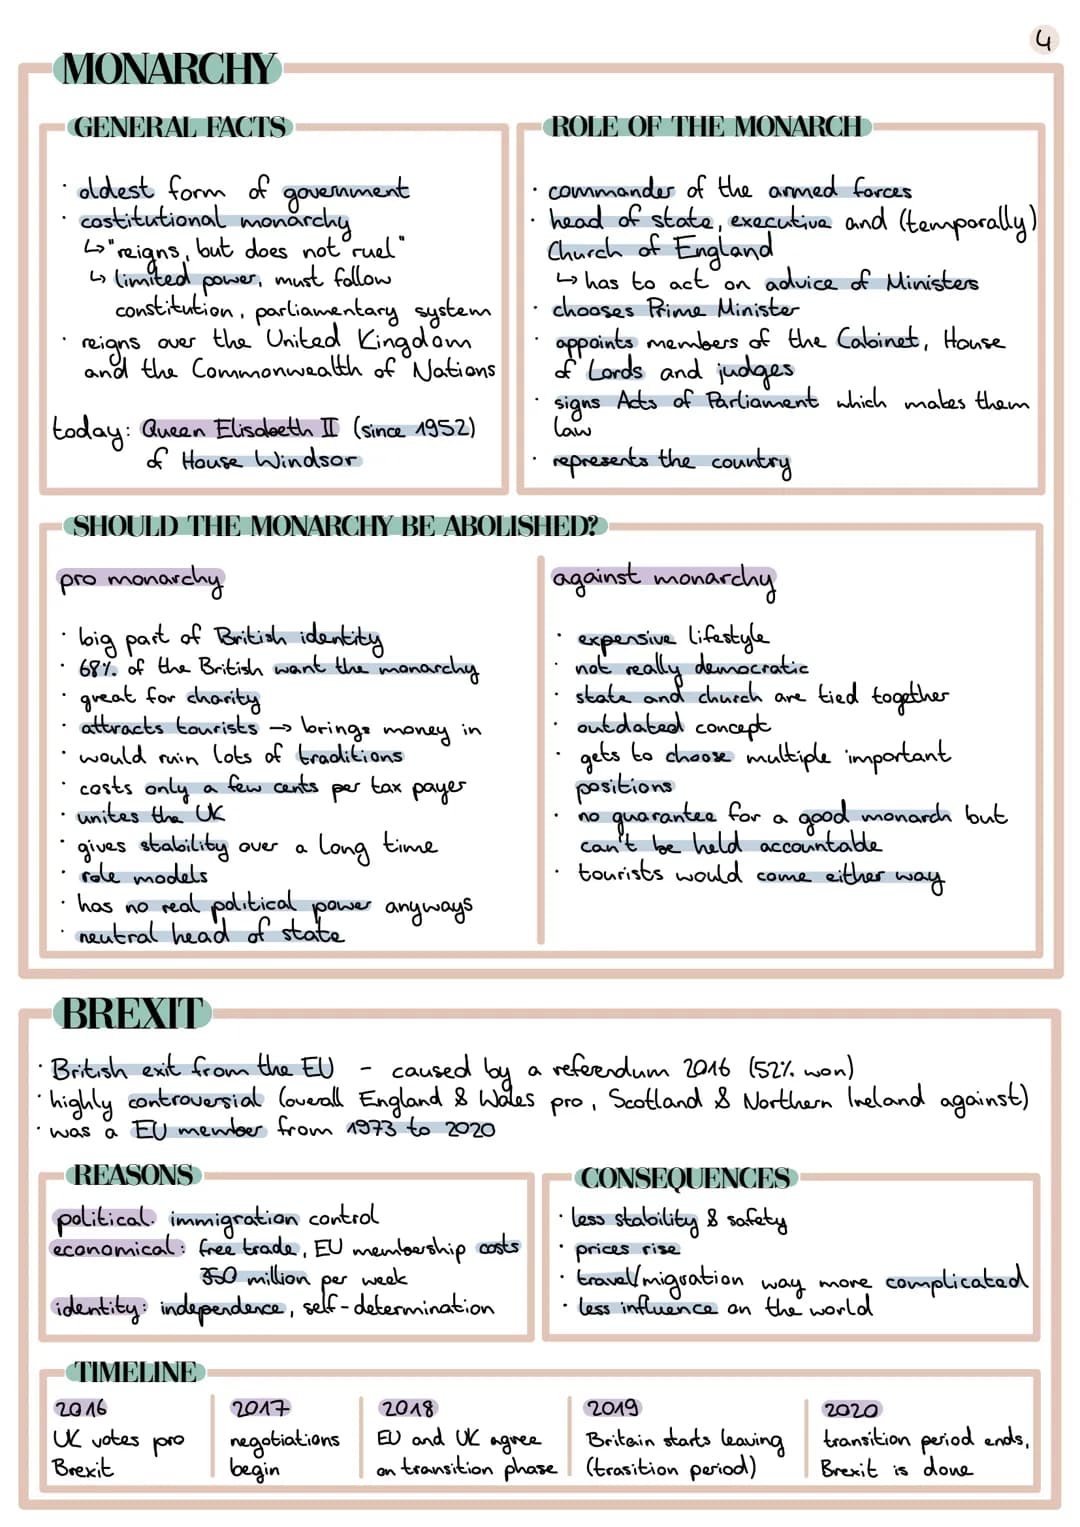 4
MONARCHY
GENERAL FACTS
· oldest form of government
· costitutional monarchy
↳ "reigns, but does not ruel"
↳ limited power, must follow
constitution, parliamentary system
· reigns over the United Kingdom
and the Commonwealth of Nations
today: Queen Elisabeth II (since 1952)
of House Windsor
ROLE OF THE MONARCH
· commander of the armed forces
· head of state, executive and (temporally)
Church of England
↳ has to act on advice of Ministers
· chooses Prime Minister
· appoints members of the Cabinet, House
of Lords and judges
· signs Acts of Parliament which makes them
law
· represents the country
SHOULD THE MONARCHY BE ABOLISHED?
pro monarchy
· big part of British identity
· 68% of the British want the monarchy
· great for charity
· attracts tourists → brings money in
· would ruin lots of traditions
· costs only a few cents per tax payer
· unites the UK
· gives stability over a long time
· role models
· has no real political power anyways
· neutral head of state
against monarchy
· expensive lifestyle
· not really democratic
· state and church are tied together
· outdated concept
· gets to choose multiple important
positions
· no guarantee for a good monarch but
can't be held accountable
· tourists would come either way
BREXIT
· British exit from the EU - caused by a referendum 2016 (52% won)
· highly controversial (overall England & Wales pro, Scotland & Northern Ireland against)
· was a EU member from 1973 to 2020
REASONS
political: immigration control
economical: free trade, EU membership costs
350 million per week
identity: independence, self-determination
CONSEQUENCES
· less stability & safety
· prices rise
· travel/migration way more complicated
· less influence on the world
TIMELINE
2016
UK votes pro
Brexit
2017
negotiations
begin
2018
EU and UK agree
on transition phase
2019
Britain starts leaving
(trasition period)
2020
transition period ends,
Brexit is done